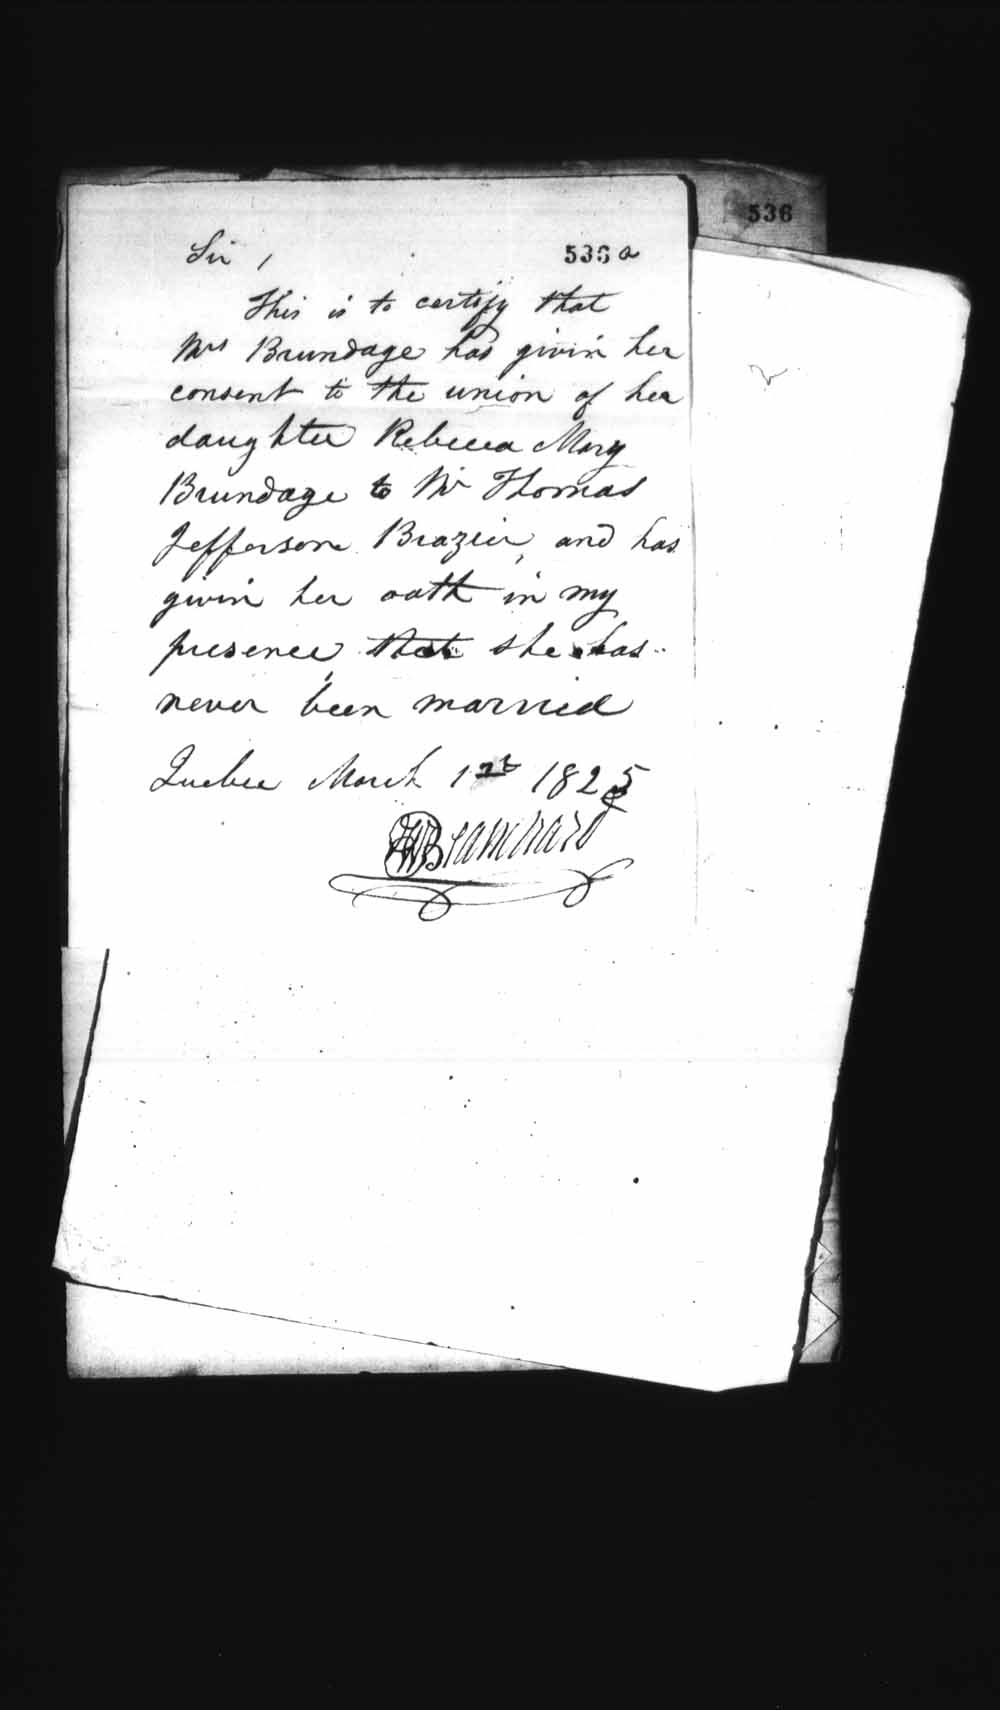 536
Sir,
536 a
This is to certify that
Mrs Brundage has givin her
consent to the union of her
daughter Rebecca Mary
Brundage to Mr Thomas
Jefferson Brazier, and has
givin her oath in my
presence, that she has
never been married
Quebec March 1st 1825
Blanchard